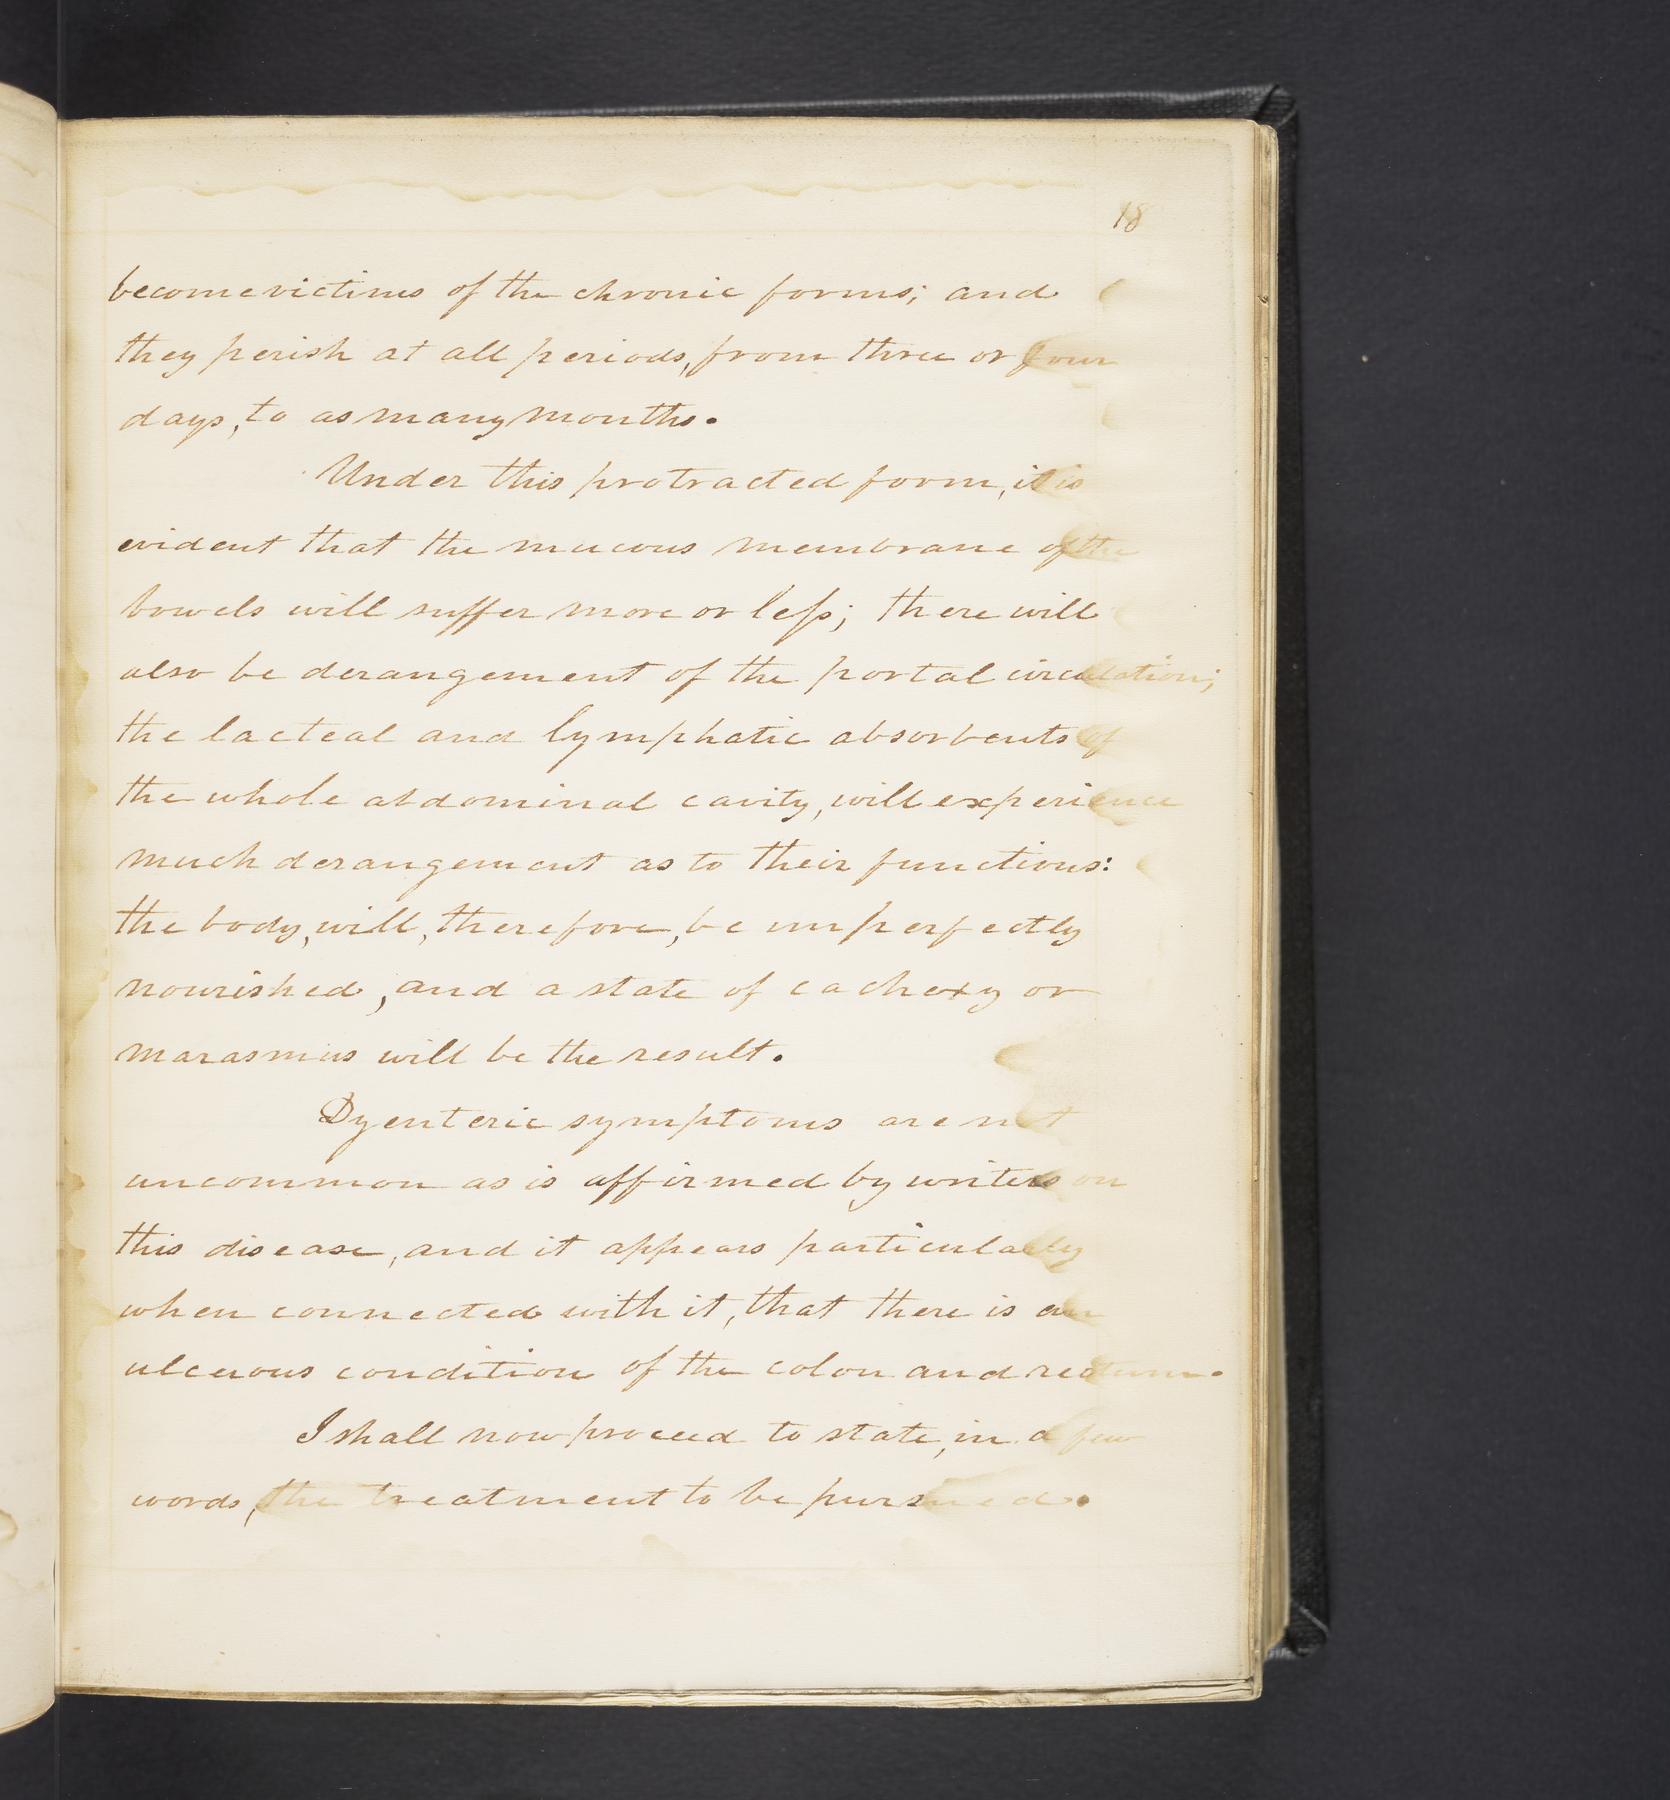 18
become victims of the chronic forms; and
they perish at all periods, from three or four
days, to as many months.
Under this protracted form, it is
evident that the mucous membrane of the
bowels will suffer more or less; there will
also be derangement of the portal circulation;
the lacteal and lymphatic absorbents of
the whole abdominal cavity, will experience
much derangement as to their functions:
the body, will, therefore, be imperfectly
nourished, and a state of cachexy or
marasmus will be the result.
Dyenteric symptoms are not
uncommon as is affirmed by writers on
this disease, and it appears particularly
when connected with it, that there is an
ulcerous condition of the colon and rectum.
I shall now proceed to state, in a few
words, the treatment to be pursued.